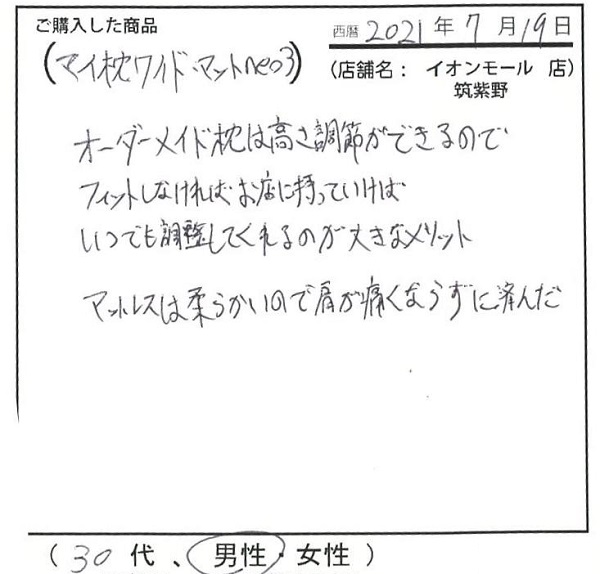 ご購入した商品
西暦 2021年7月19日
(マイ枕ワイド・マットneo3)
(店舗名: イオンモール 店)
筑紫野
オーダーメイド枕は高さ調節ができるので
フィットしなければお店に持っていけば
いつでも調整してくれるのが大きなメリット
マットレスは柔らかいので肩が痛くならずに済んだ
(30代、男性・女性)